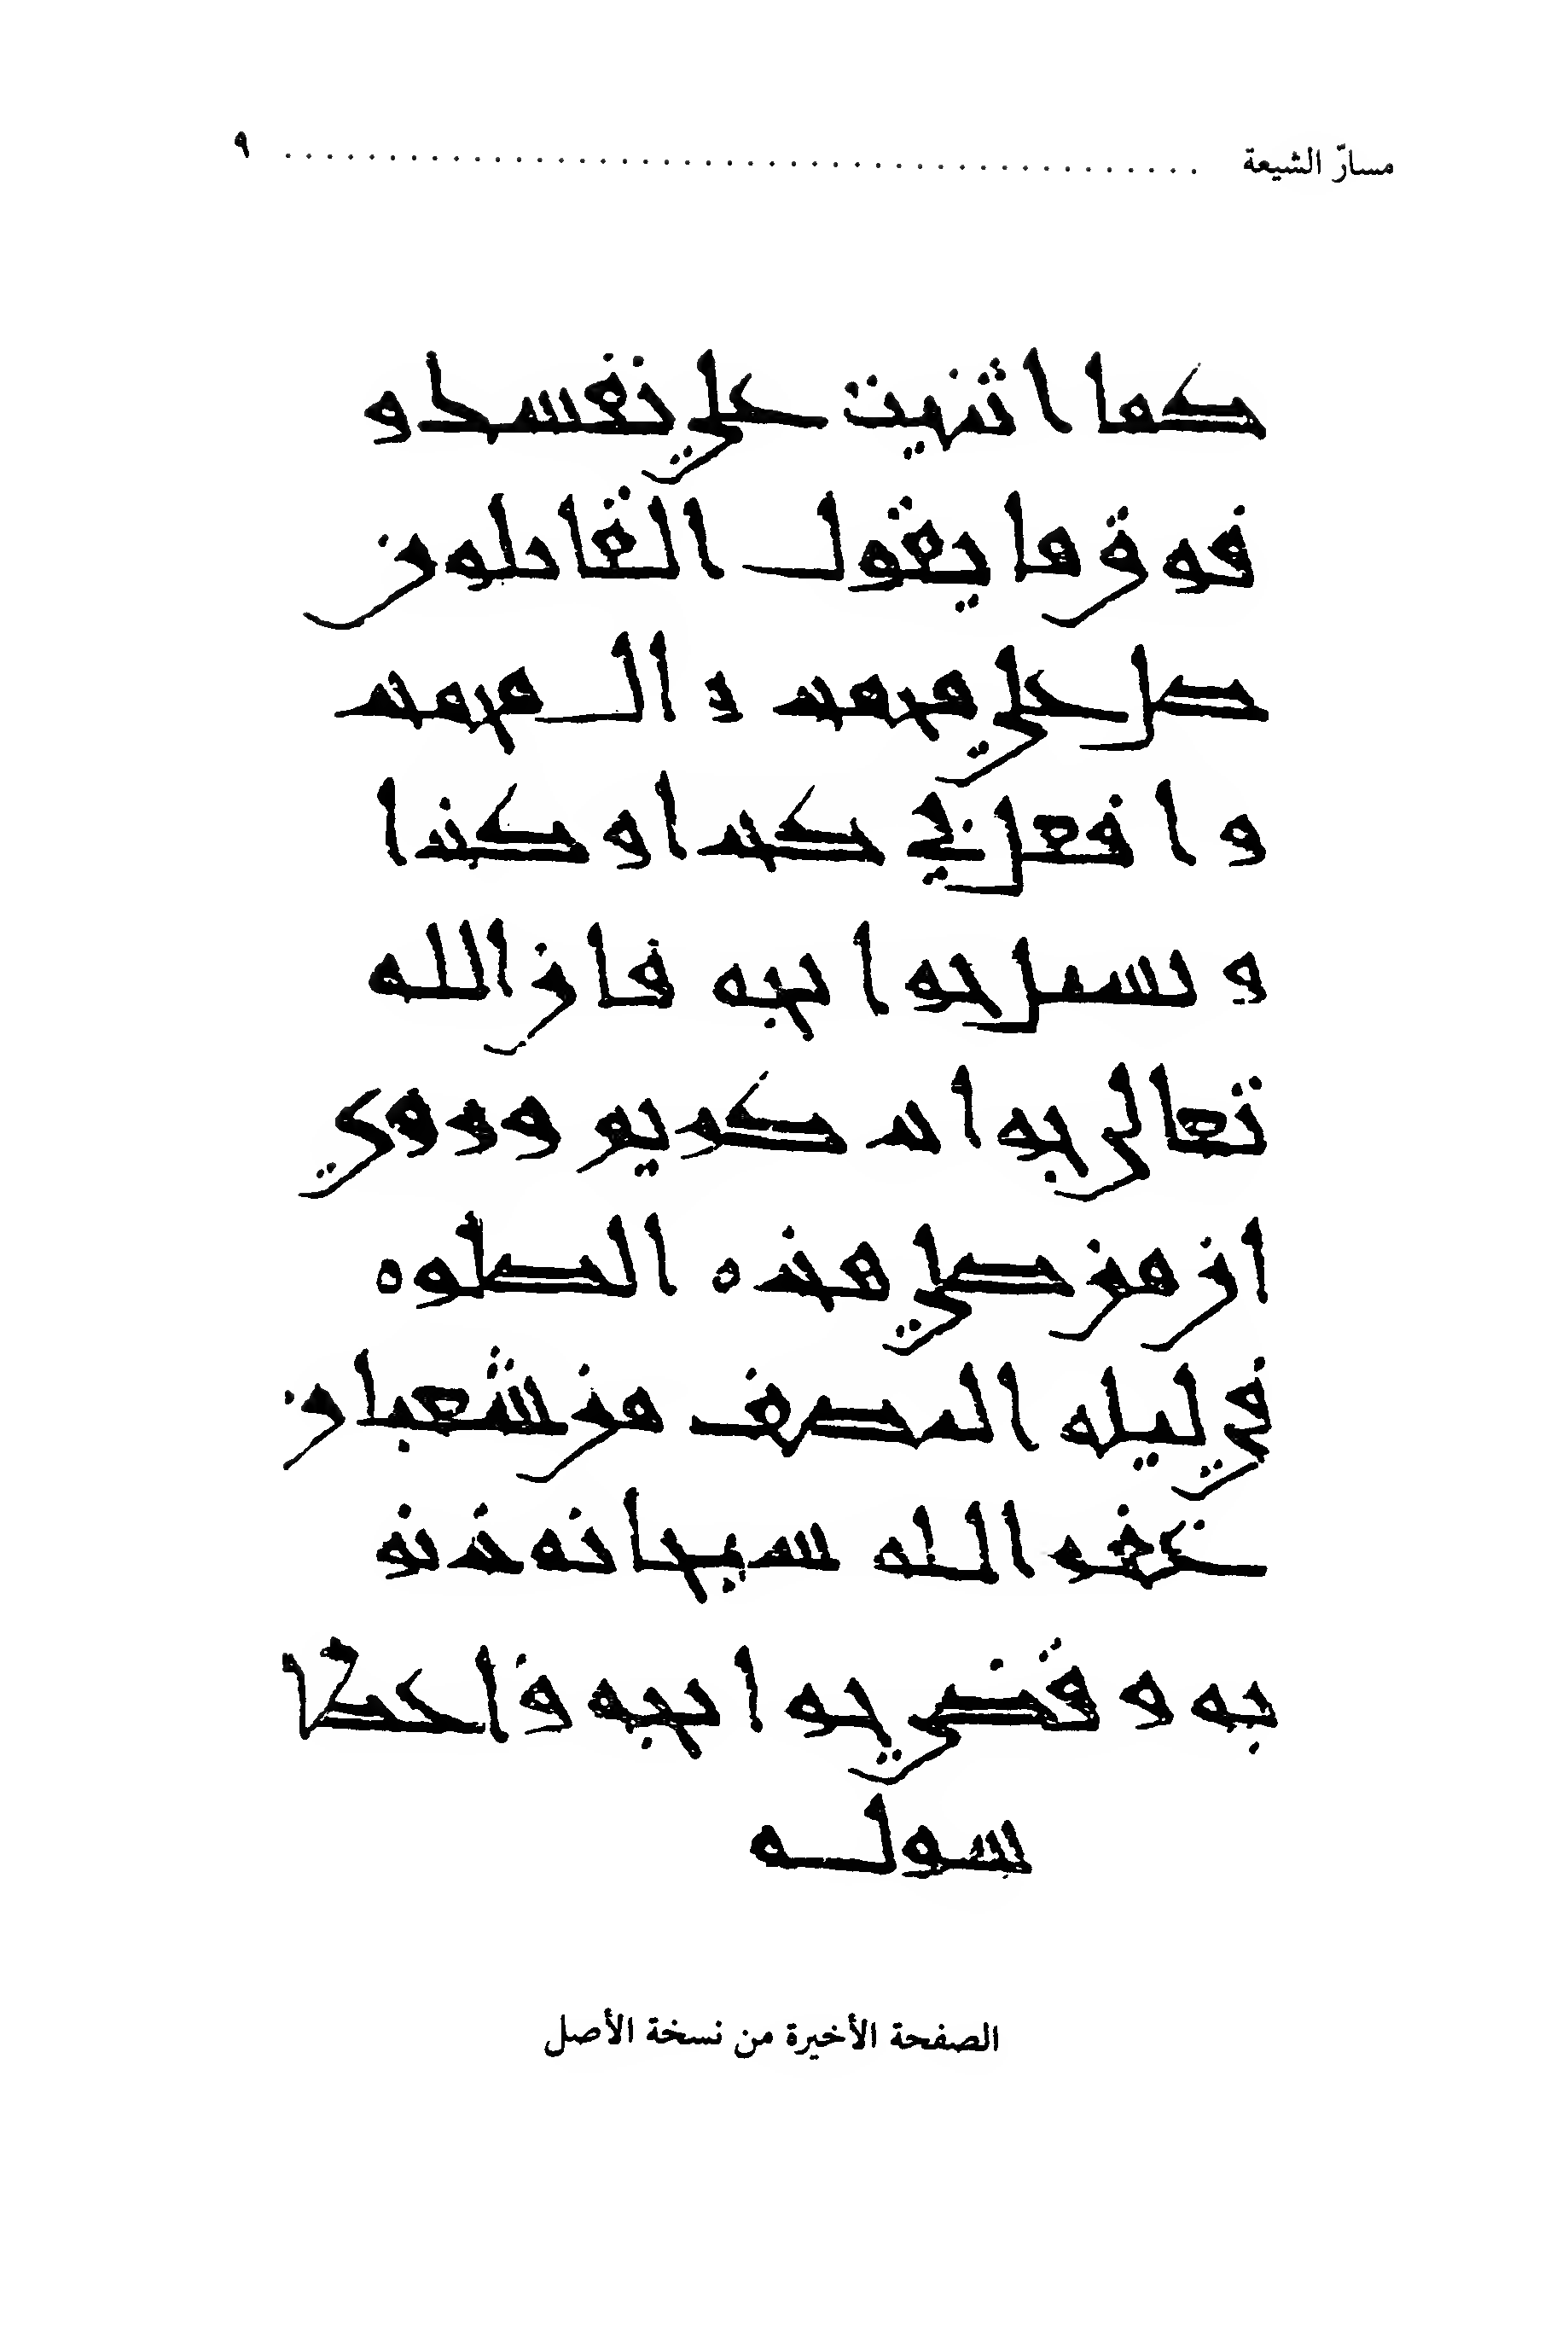 مسارّ الشيعة ........................................ ٩
كما اثنيت علي نفسك و
فوق ما يقول القائلون
صل علي محمد و ال محمد
و افعل بي كذا و كذا
و تسئل حوائجه فان الله
تعالي جواد كريم وروي
ان من صلي هذه الصلوه
في ليله النصف من شعبان
غفر الله سبحانه ذنو
به و قضي حوائجه و اعطا
سوله
الصفحة الأخيرة من نسخة الأصل